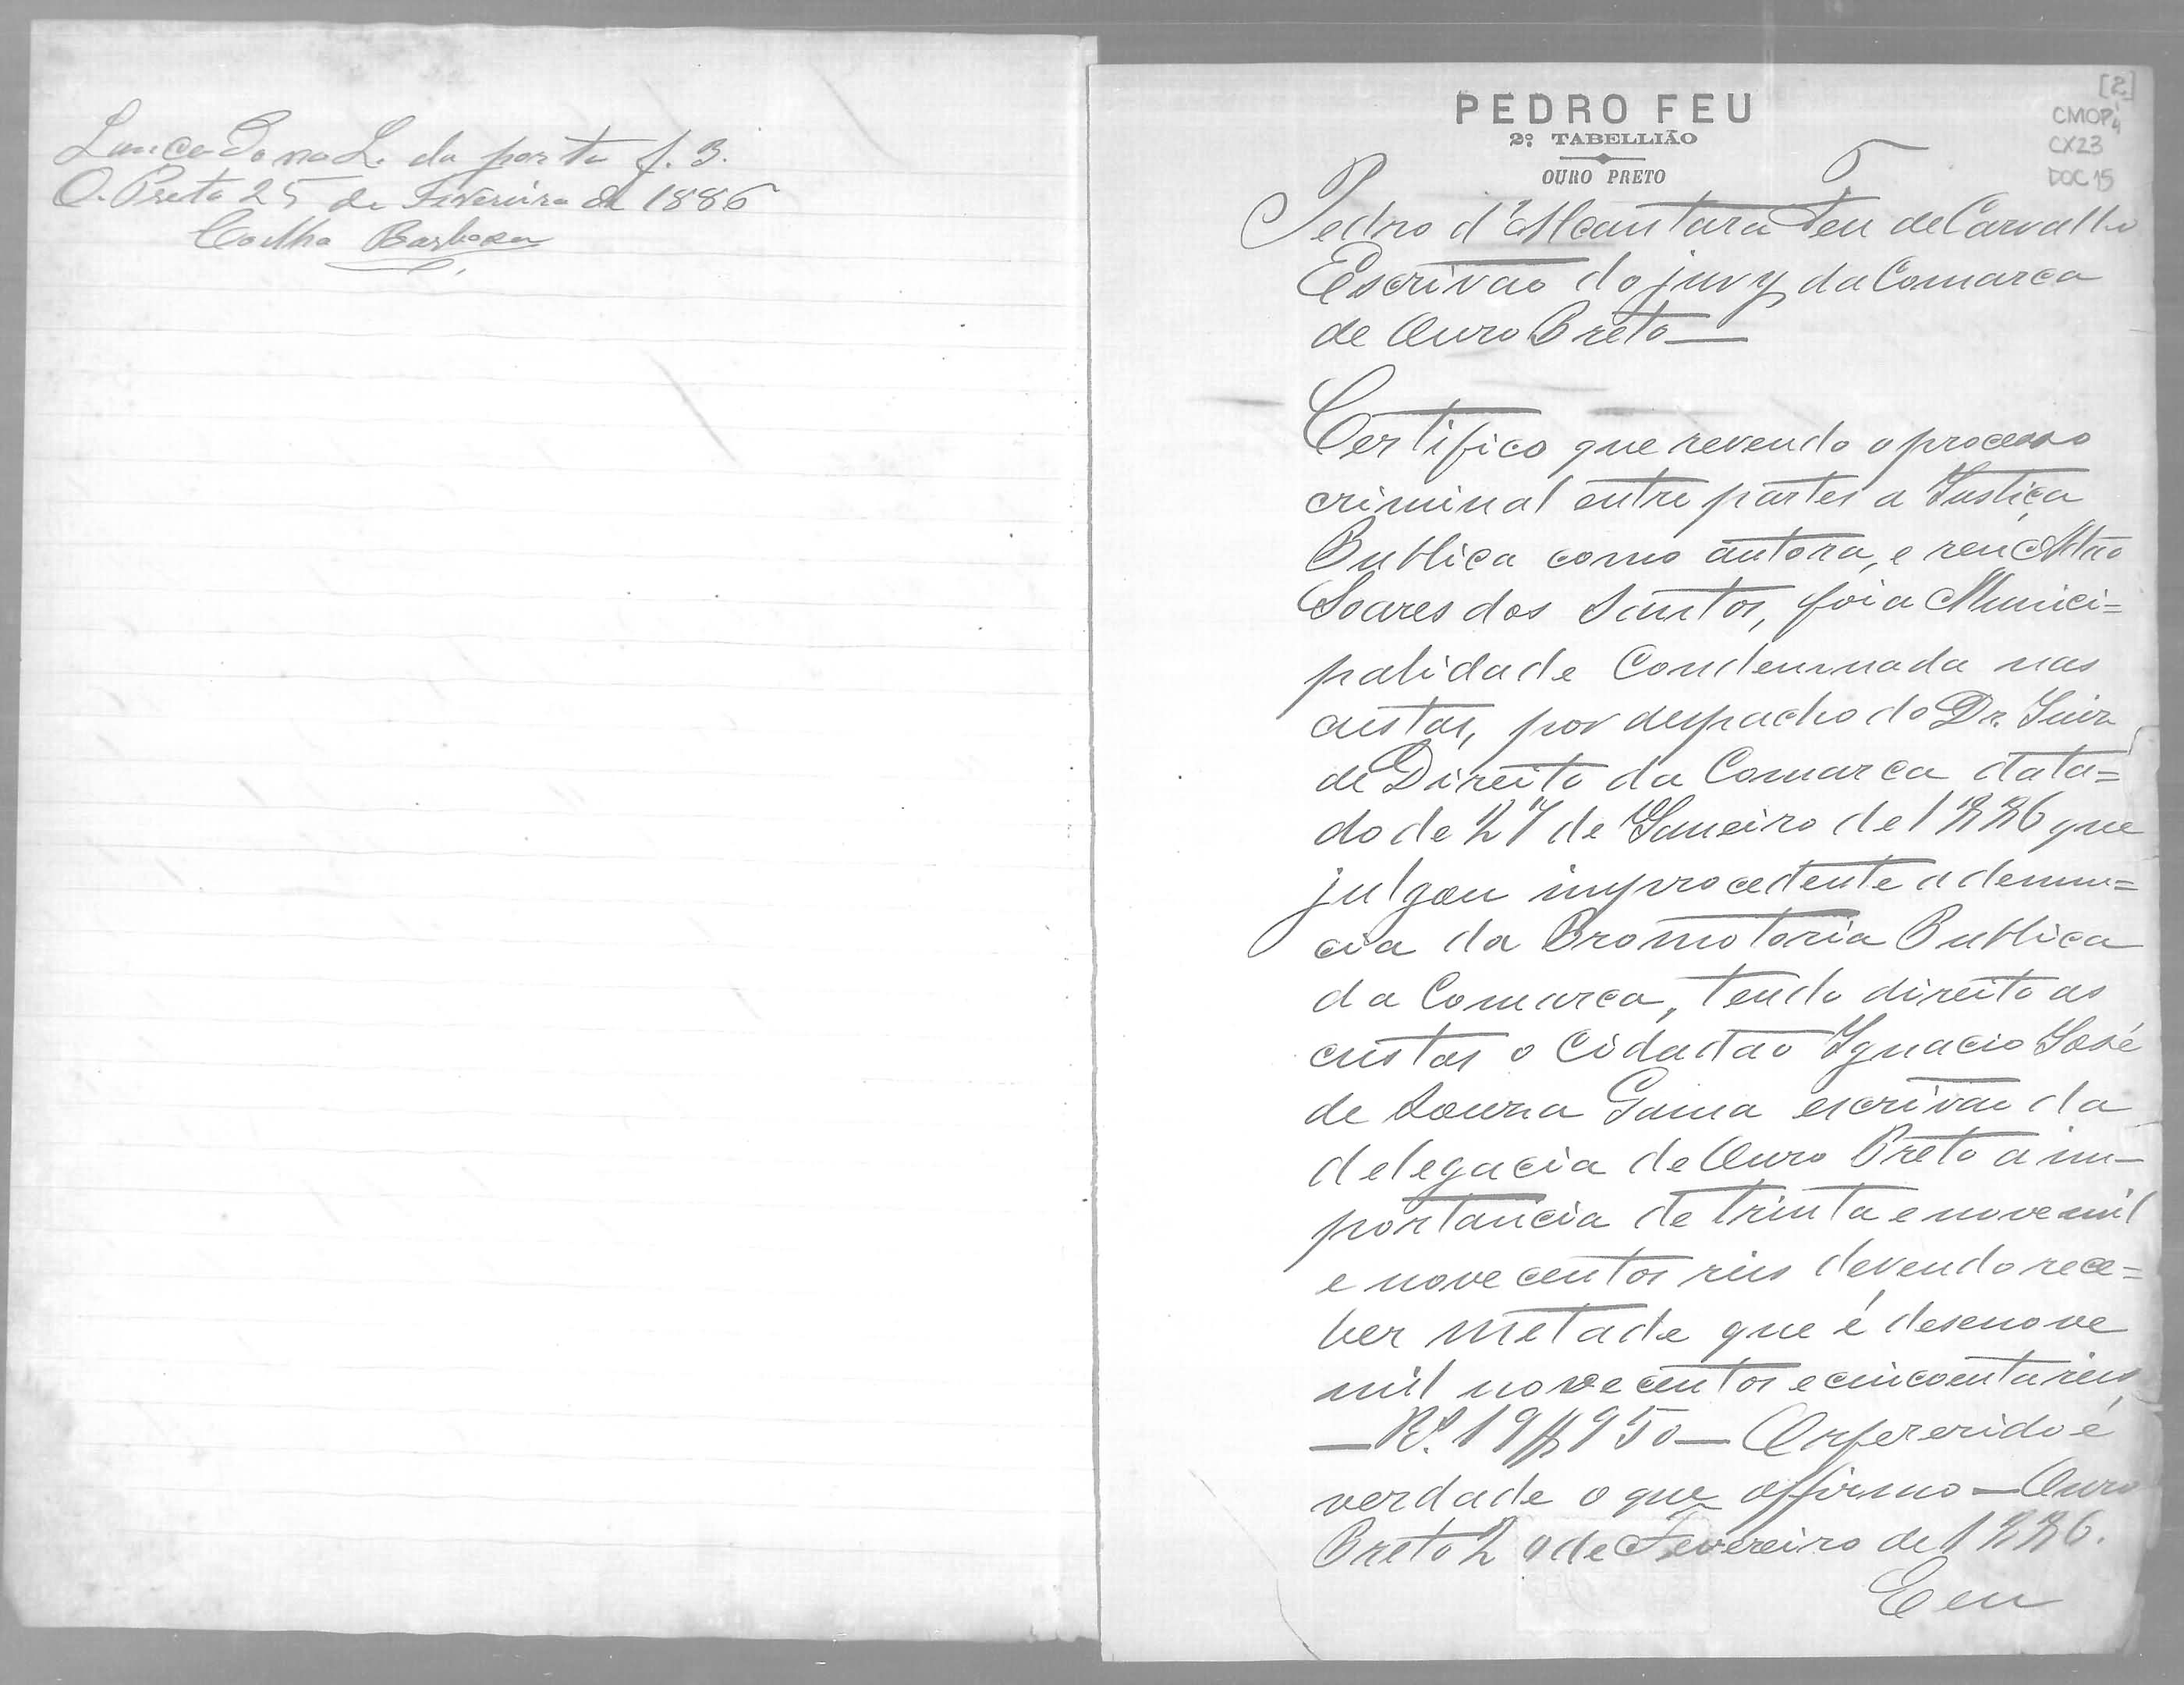 Lançado no L. da porta f. 3.
O. Preto 25 de Fevereiro de 1886
Coelho Barbosa
[2]
CMOP
CX23
DOC 15
PEDRO FEU
2º TABELLIÃO
OURO PRETO
Pedro d'Alcantara Feu de Carvalho
Escrivão do jury da Comarca
de Ouro Preto—
Certifico que revendo o processo
criminal entre partes a Justiça
Publica como autora, e reu
Soares dos Santos, foi a Munici=
palidade Condemnada nas
custas, por despacho do Dr. Juiz
de Direito da Comarca data=
do de 27 de Janeiro de 1886 que
julgou improcedente a denun=
cia da Promotoria Publica
da Comarca, tendo direito as
custas o Cidadão Ignacio José
de Souza Gama escrivão da
delegacia de Ouro Preto a im-
portancia de trinta e nove mil
e nove centos reis devendo rece=
ber metade que é desenove
mil nove centos e cincoenta reis
—Rs. 19$950— O referido é
verdade o que affirmo—Ouro
Preto de Fevereiro de 1886.
Eeu